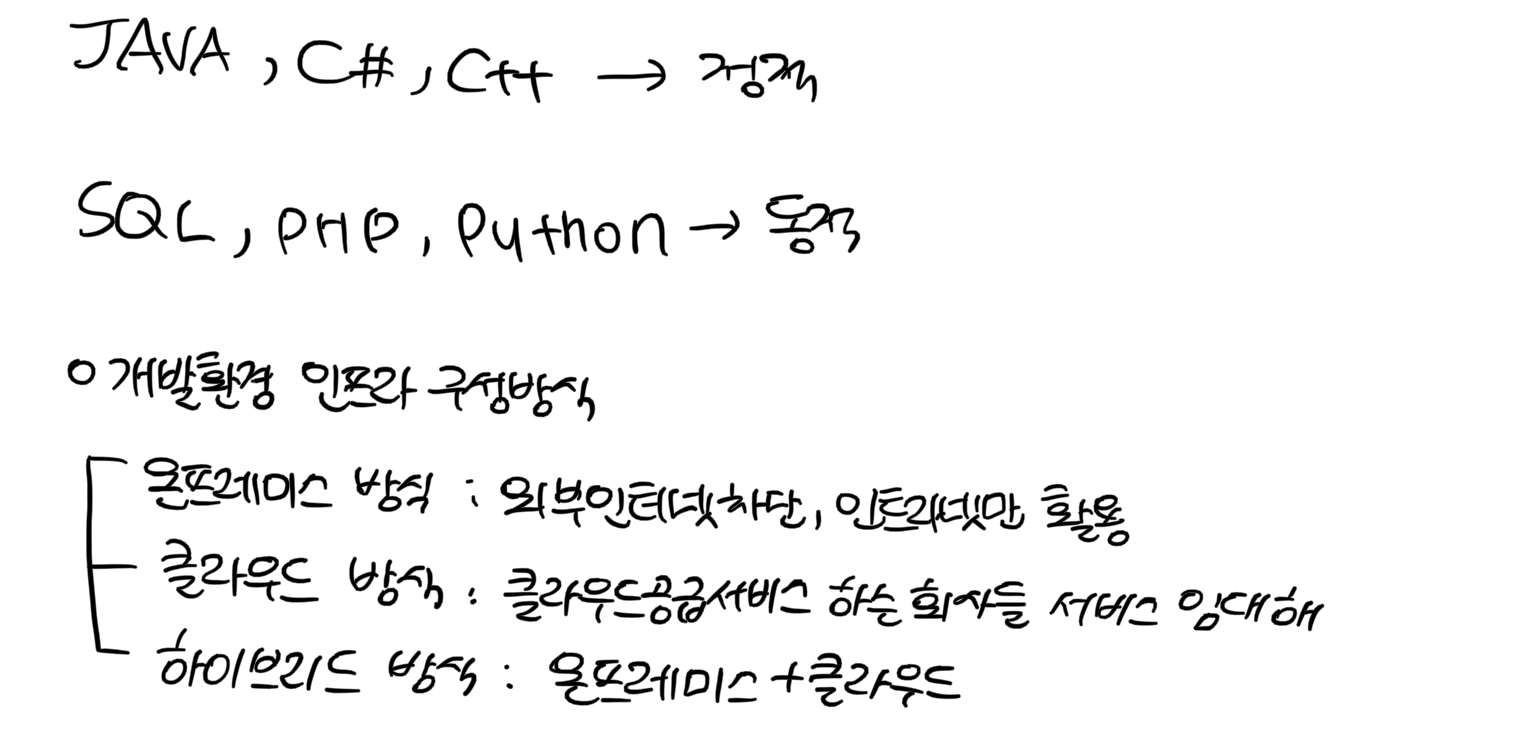 JAVA, C#, C++ → 정적
SQL, PHP, Python → 동적
○ 개발환경 인프라 구성방식
온프레미스 방식 : 외부인터넷차단, 인트라넷만 활용
클라우드 방식 : 클라우드공급서비스 하는 회사들 서비스 임대해
하이브리드 방식 : 온프레미스 + 클라우드